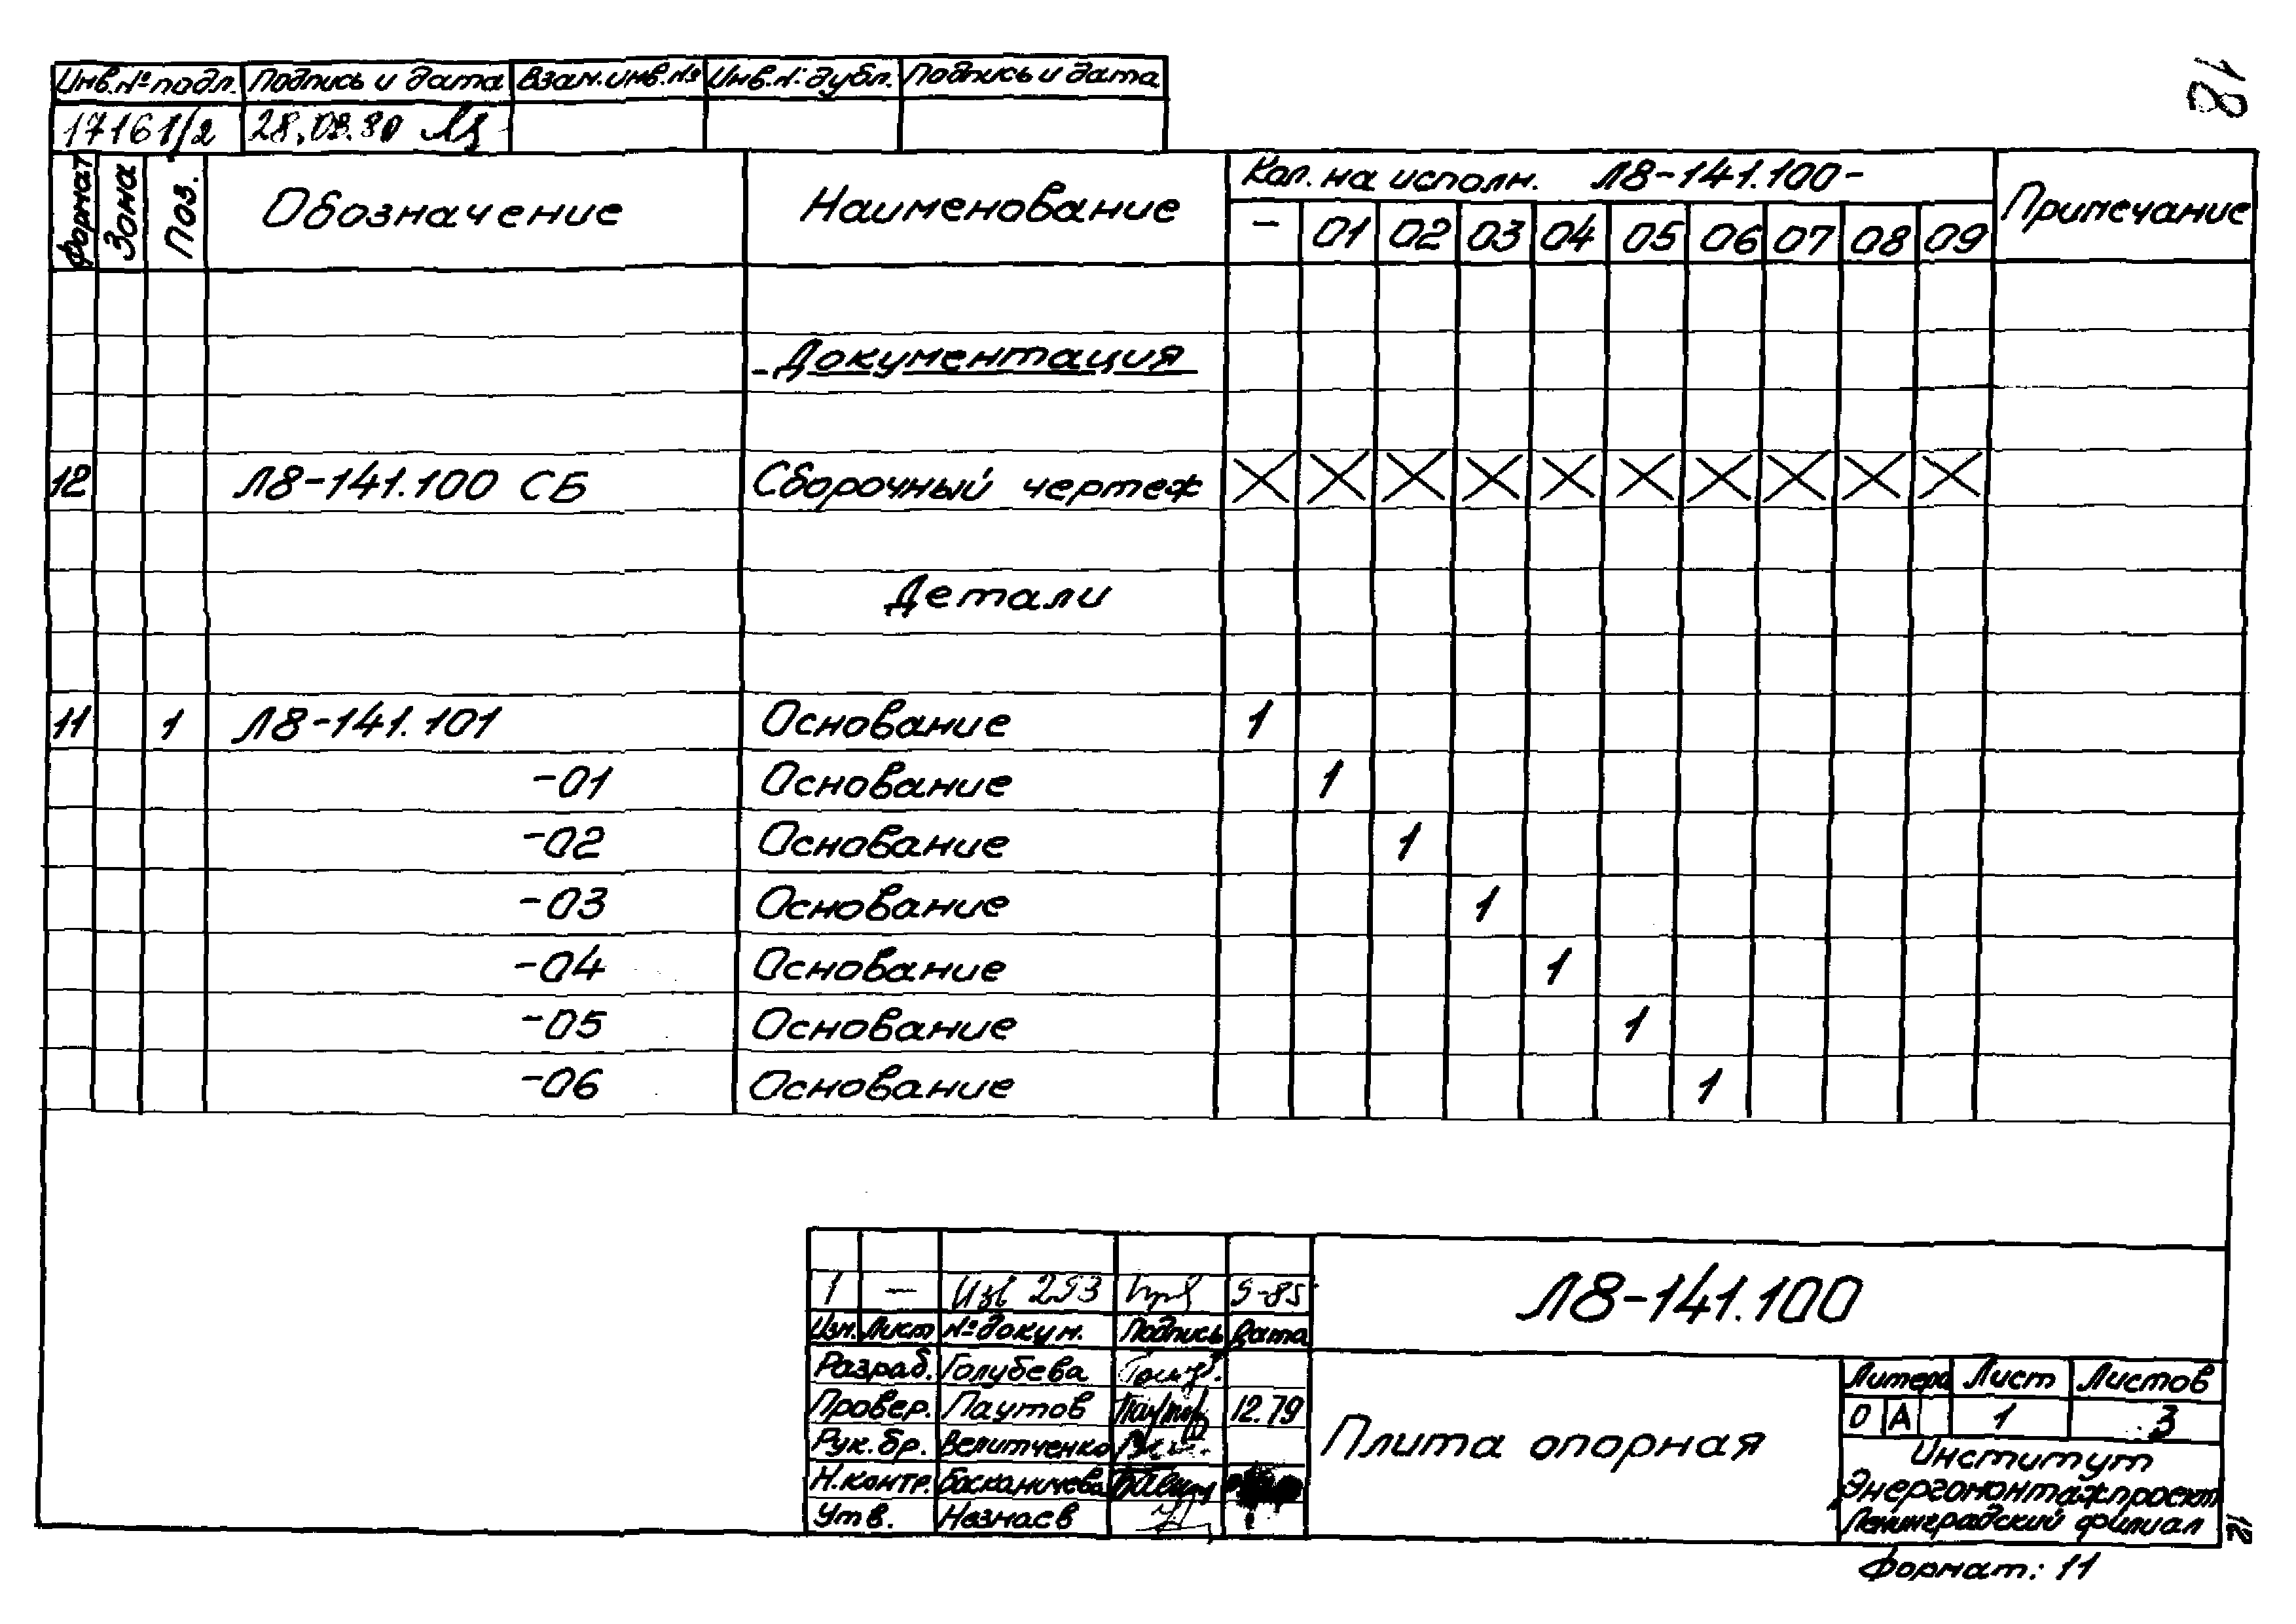 18
Инв.№ подл. Подпись и дата Взам.инв.№ Инв.№ дубл. Подпись и дата
17161/2 28.08.80
Формат Зона Поз. Обозначение Наименование Кол. на исполн. Л8-141.100- Примечание
- 01 02 03 04 05 06 07 08 09
Документация
12 Л8-141.100 СБ Сборочный чертеж X X X X X X X X X X
Детали
11 1 Л8-141.101 Основание 1
-01 Основание 1
-02 Основание 1
-03 Основание 1
-04 Основание 1
-05 Основание 1
-06 Основание 1
1 - Изв 253 5-85
Изм. Лист № докум. Подпись Дата
Л8-141.100
Разраб. Голубева
Провер. Паутов 12.79
Рук. бр. Велитченко
Н.контр. Басканичева
Утв. Незнаев
Плита опорная
Литера Лист Листов
О А 1 3
Институт
Энергомонтажпроект
Ленинградский филиал
Формат: 11